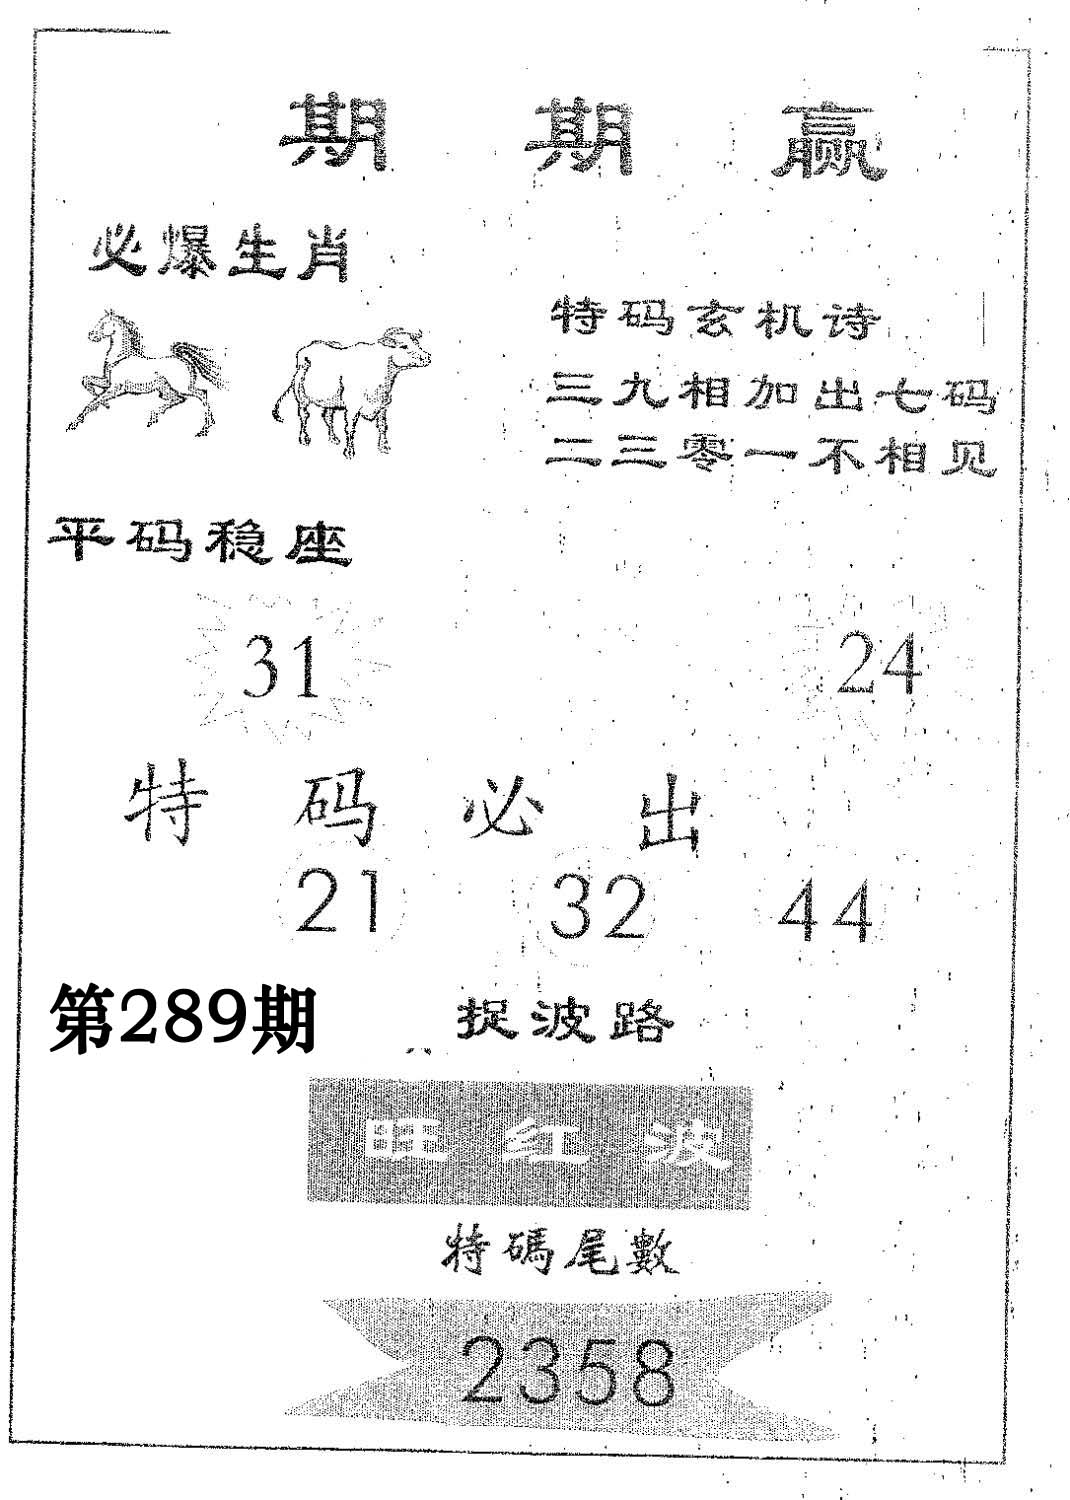 期期赢
必爆生肖
特码玄机诗
三九相加出七码
二三零一不相见
平码稳座
31
24
特码必出
21
32
44
第289期
捉波路
旺红波
特碼尾數
2358